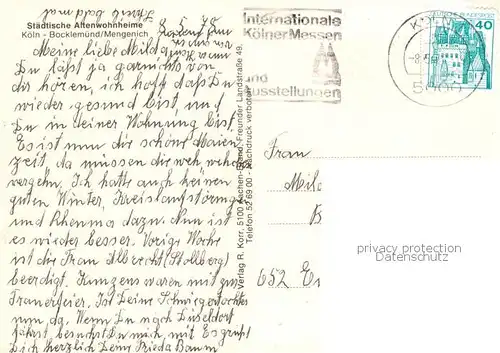 Städtische Altenwohnheime
Köln - Bocklemünd/Mengenich
8.5.78
Meine liebe Milda
Du läßt ja garnichts von
dir hören, ich hoff daß Du
wieder gesund bist, und
Du in deiner Wohnung bist.
Es ist nun die schöne Maien
zeit, da müssen dir weh wehchen
vergehn, Ich hatte auch keinen
guten Winter, Kreislaufstörung
und Rheuma dazu. Nun ist
es wieder besser. Vorige Woche
ist die Frau Albrecht (Stollberg)
beerdigt. Jungens waren mit zur
Trauerfeier. Ist Deine Schwiegertochter
nun da. Wenn Du nach Düsseldorf
fährst besuchst Du mich, mit Es grüßt
Dich herzlich Deine Frieda Baum
Verlag R. Korr, 5100 Aachen-Brand, Freunder Landstraße 49,
Telefon 52 69 00 - Nachdruck verboten
Internationale
Kölner Messen
und
Ausstellungen
KÖLN
5000
40
Frau
652
privacy protection
Datenschutz